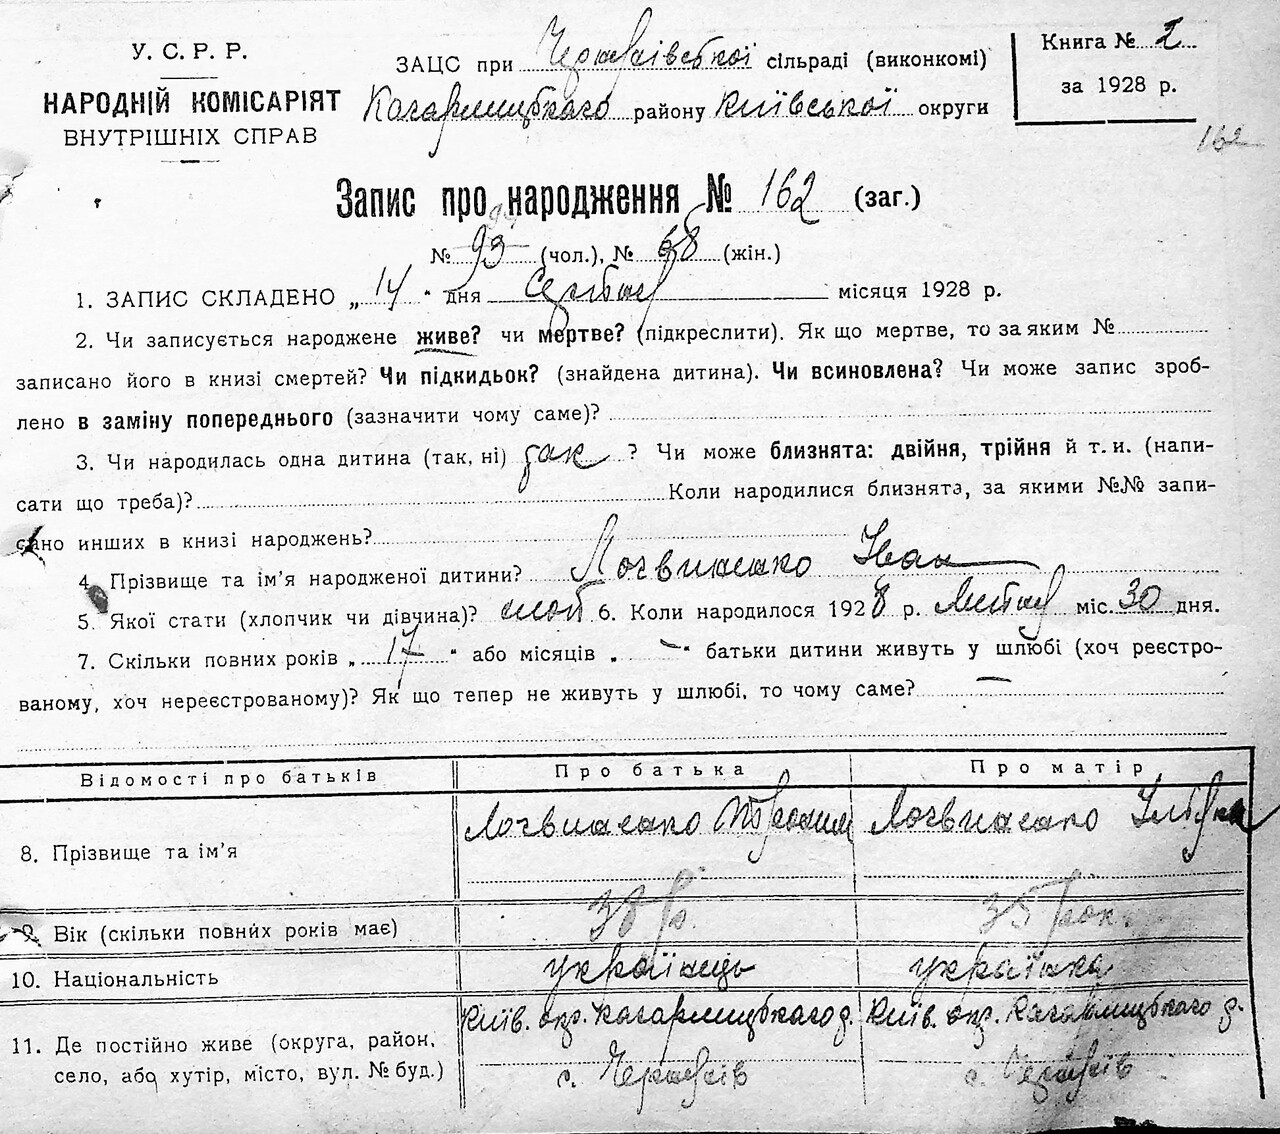 У.С.Р.Р.
НАРОДНІЙ КОМІСАРІЯТ
ВНУТРІШНІХ СПРАВ
ЗАЦС при сільраді (виконкомі)
Кагарлицького району Київської округи
Книга № 2
за 1928 р.
162
Запис про народження № 162 (заг.)
№ 93 (чол.), № 68 (жін.)
1. ЗАПИС СКЛАДЕНО „ 14 “ дня місяця 1928 р.
2. Чи записується народжене живе? чи мертве? (підкреслити). Як що мертве, то за яким №
записано його в книзі смертей? Чи підкидьок? (знайдена дитина). Чи всиновлена? Чи може запис зроб-
лено в заміну попереднього (зазначити чому саме)?
3. Чи народилась одна дитина (так, ні) так ? Чи може близнята: двійня, трійня й т. и. (напи-
сати що треба)? Коли народилися близнята, за якими №№ запи-
сано инших в книзі народжень?
4. Прізвище та ім’я народженої дитини? Логвиненко Іван
5. Якої стати (хлопчик чи дівчина)? хлоп 6. Коли народилося 1928 р. міс. 30 дня.
7. Скільки повних років „ 17 “ або місяців „ — “ батьки дитини живуть у шлюбі (хоч реєстро-
ваному, хоч нереєстрованому)? Як що тепер не живуть у шлюбі, то чому саме? —
Відомості про батьків Про батька Про матір
8. Прізвище та ім’я Логвиненко Логвиненко
9. Вік (скільки повних років має) 38 р. 35 рок.
10. Національність українець українка
11. Де постійно живе (округа, район, Київ. окр. Кагарлицького р. Київ. окр. Кагарлицького р.
село, або хутір, місто, вул. № буд.) с. с.